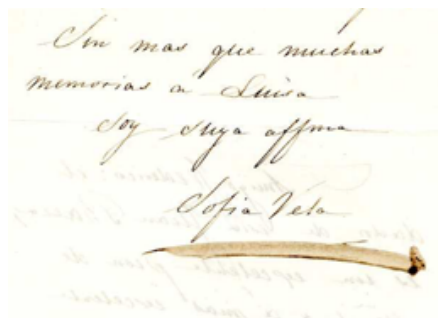 Sin mas que muchas
memorias a Luisa
soy suya affma
Sofia Vela